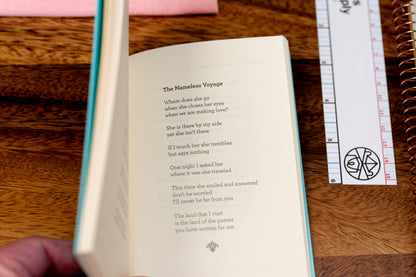 The Nameless Voyage
Where does she go
when she closes her eyes
when we are making love?
She is there by my side
yet she isn't there
If I touch her she trembles
but says nothing
One night I asked her
where it was she traveled
This time she smiled and answered
don't be worried
I'll never be far from you
The land that I visit
is the land of the poems
you have written for me.